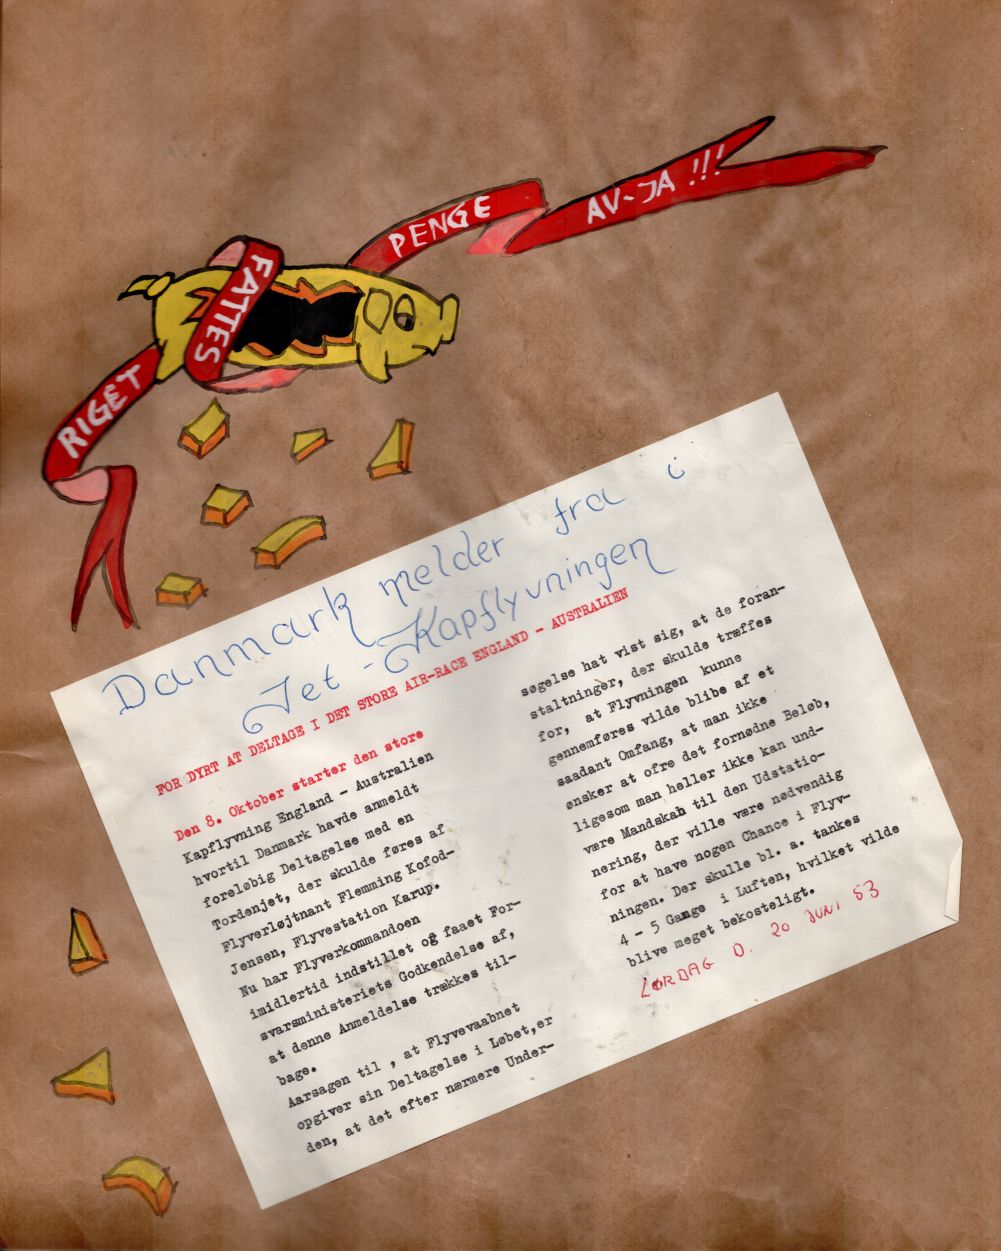 RIGET
FATTES
PENGE
AV-JA !!!
Danmark melder fra i
Jet-Kapflyvningen
FOR DYRT AT DELTAGE I DET STORE AIR-RACE ENGLAND - AUSTRALIEN
Den 8. Oktober starter den store
Kapflyvning England - Australien
hvortil Danmark havde anmeldt
foreløbig Deltagelse med en
Tordenjet, der skulde føres af
Flyverløjtnant Flemming Kofod-
Jensen, Flyvestation Karup.
Nu har Flyverkommandoen
imidlertid indstillet og faaet For-
svarsministeriets Godkendelse af,
at denne Anmeldelse trækkes til-
bage.
Aarsagen til , at Flyvevaabnet
opgiver sin Deltagelse i Løbet,er
den, at det efter nærmere Under-
søgelse hat vist sig, at de foran-
staltninger, der skulde træffes
for, at Flyvningen kunne
gennemføres vilde blibe af et
saadant Omfang, at man ikke
ønsker at ofre det fornødne Beløb,
ligesom man heller ikke kan und-
være Mandskab til den Udstatio-
nering, der ville være nødvendig
for at have nogen Chance i Flyv-
ningen. Der skulle bl. a. tankes
4 - 5 Gange i Luften, hvilket vilde
blive meget bekosteligt.
LØRDAG D. 20 JUNI 53